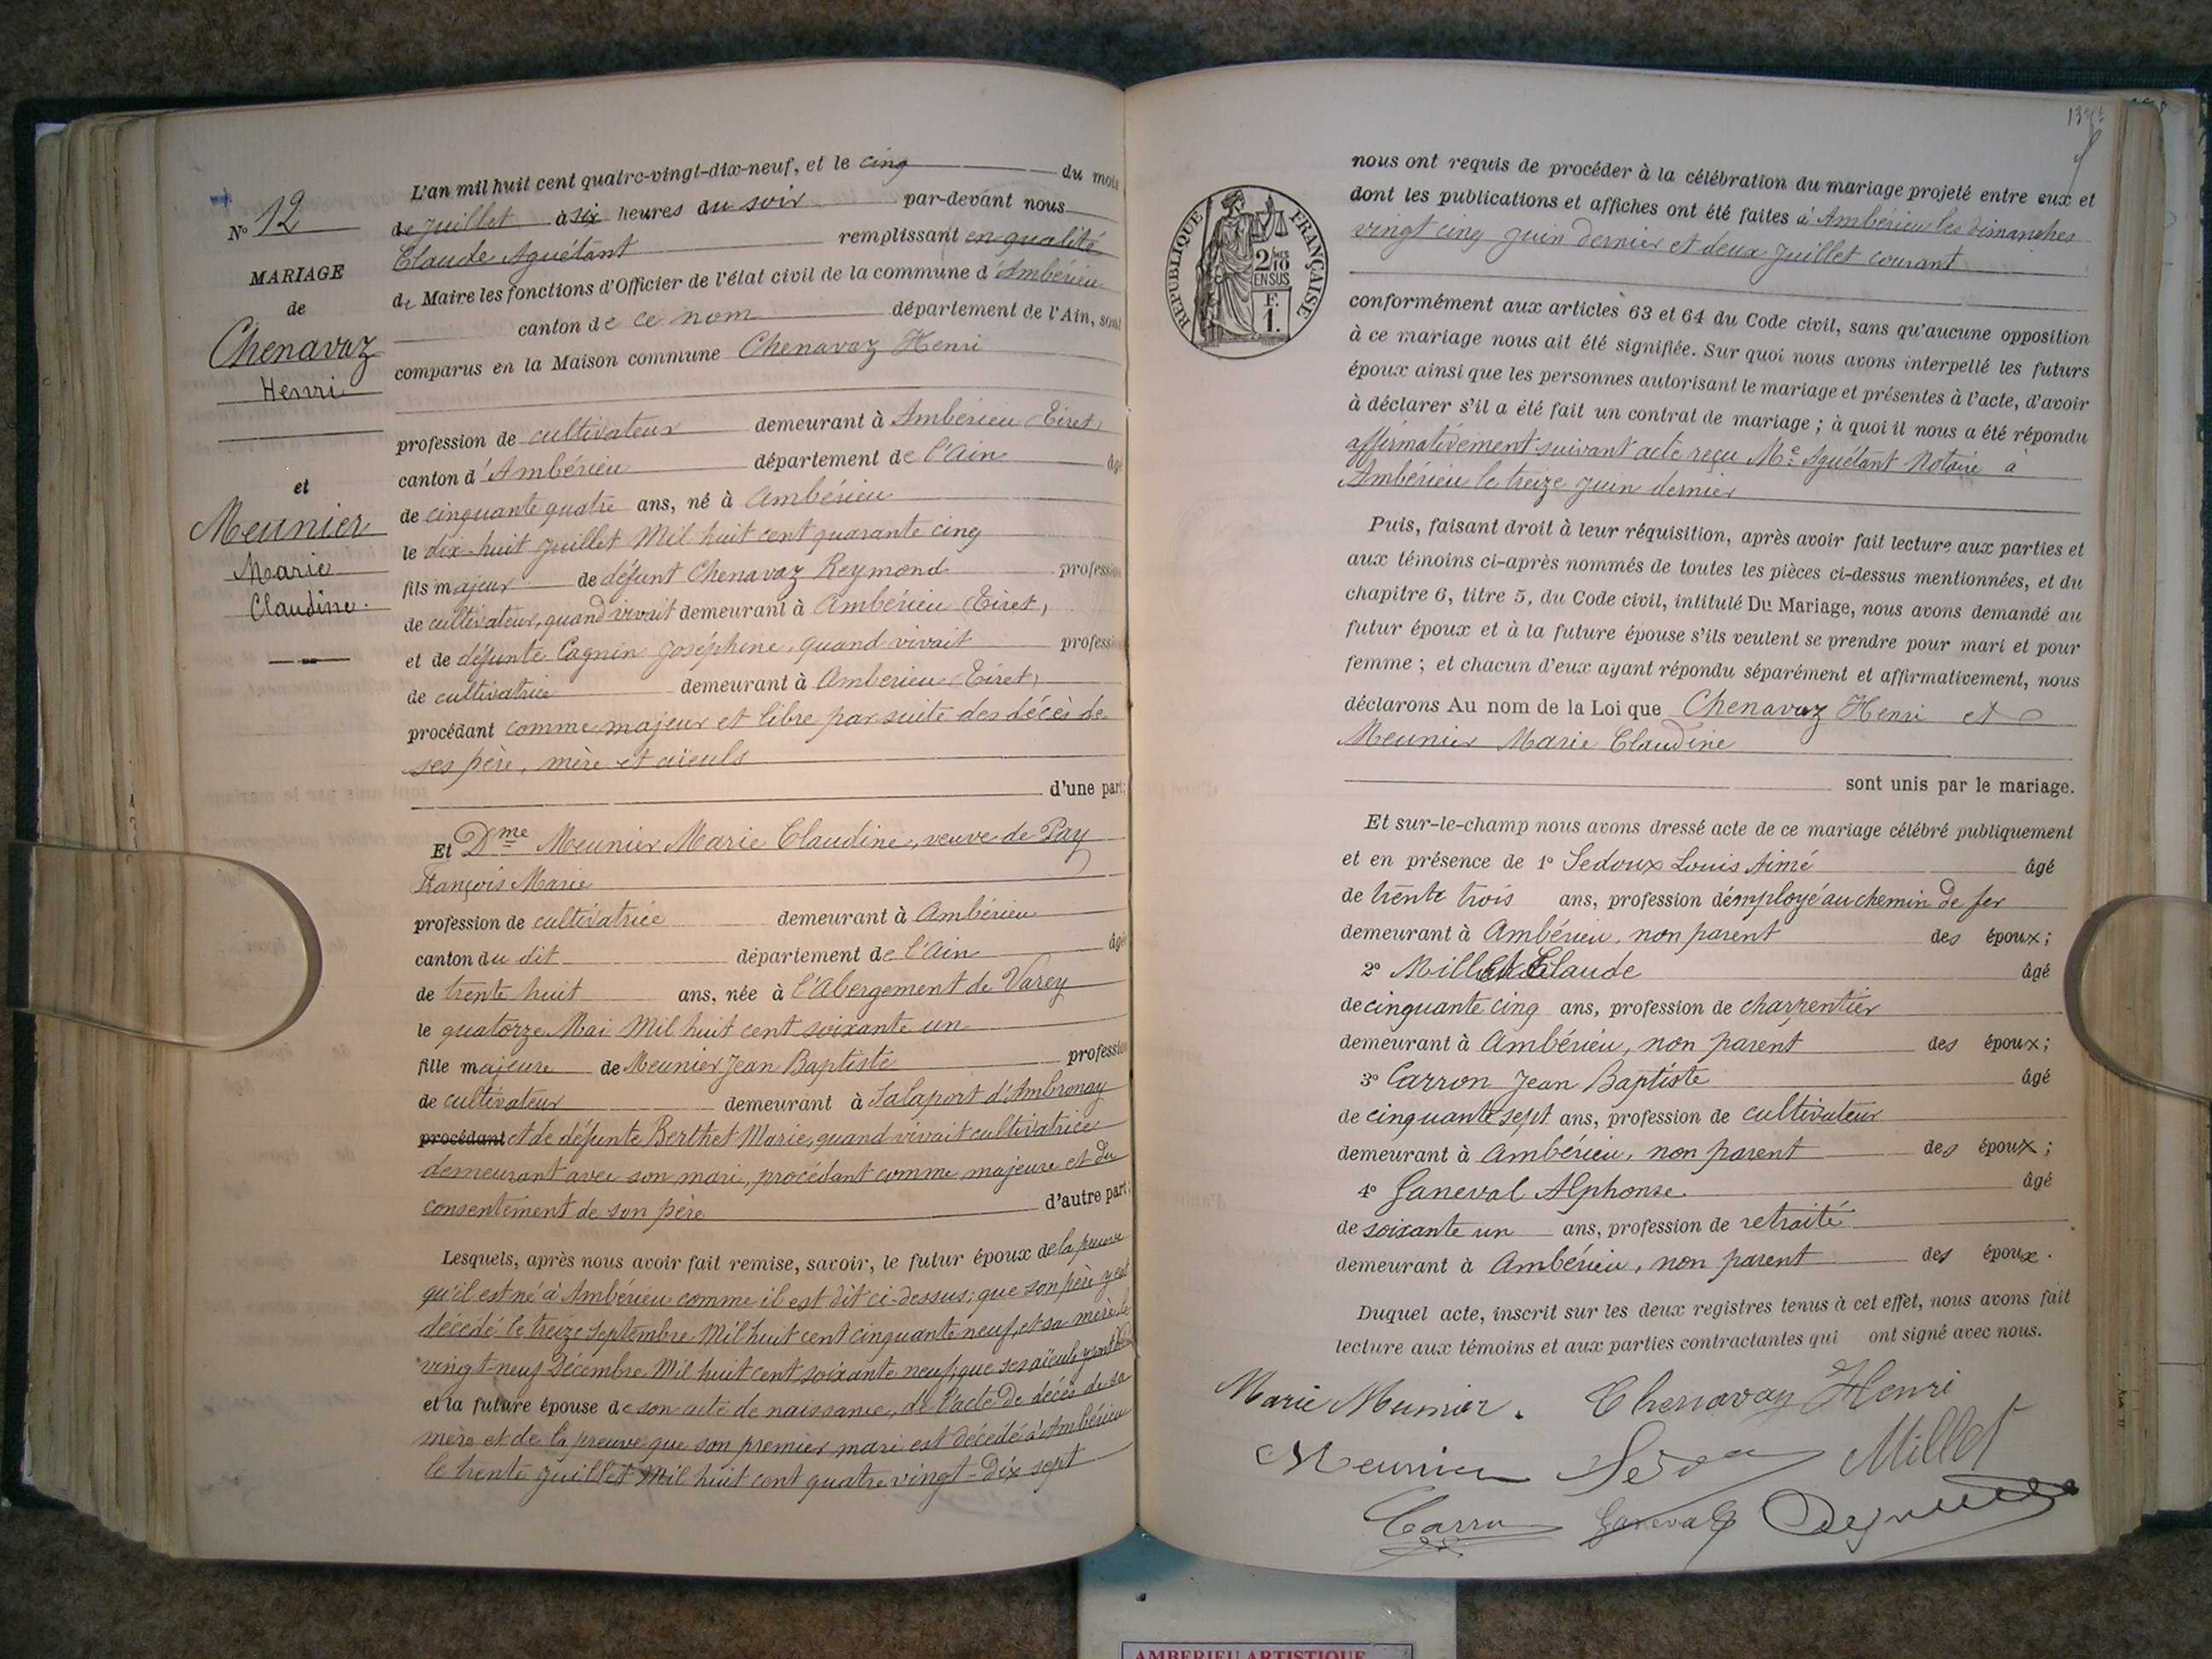 N° 12
MARIAGE
de
Chenavaz
Henri
et
Meunier
Marie
Claudine
L'an mil huit cent quatre-vingt-dix-neuf, et le cinq du mois
de Juillet à six heures du soir par-devant nous
Claude Aguétant remplissant en qualité
de Maire les fonctions d'Officier de l'état civil de la commune d'Ambérieu
canton de ce nom département de l'Ain, sont
comparus en la Maison commune Chenavaz Henri
profession de cultivateur demeurant à Ambérieu (Tiret)
canton d'Ambérieu département de l'Ain âgé
de cinquante quatre ans, né à Ambérieu
le dix-huit Juillet Mil huit cent quarante cinq
fils majeur de défunt Chenavaz Reymond profession
de cultivateur, quand vivait demeurant à Ambérieu (Tiret)
et de défunte Cagnin Joséphine, quand vivait profession
de cultivatrice demeurant à Ambérieu (Tiret)
procédant comme majeur et libre par suite des décès de
ses père, mère et aïeuls
d'une part;
Et Dme Meunier Marie Claudine, veuve de Pay
François Marie
profession de cultivatrice demeurant à Ambérieu
canton du dit département de l'Ain âgé
de trente huit ans, née à l'Abergement de Varey
le quatorze Mai Mil huit cent soixante un
fille majeure de Meunier Jean Baptiste profession
de cultivateur demeurant à Salaport d'Ambronay
procédant et de défunte Berthet Marie, quand vivait cultivatrice
demeurant avec son mari, procédant comme majeure et du
consentement de son père d'autre part;
Lesquels, après nous avoir fait remise, savoir, le futur époux de la preuve
qu'il est né à Ambérieu comme il est dit ci-dessus; que son père y est
décédé le treize Septembre Mil huit cent cinquante neuf, et sa mère le
vingt-neuf Décembre Mil huit cent soixante neuf; que ses aïeuls y sont
et la future épouse de son acte de naissance, de l'acte de décès de sa
mère et de la preuve que son premier mari est décédé à Ambérieu
le trente Juillet Mil huit cent quatre vingt-dix sept
REPUBLIQUE FRANÇAISE
2 10
EN SUS
F.
1.
nous ont requis de procéder à la célébration du mariage projeté entre eux et
dont les publications et affiches ont été faites à Ambérieu les dimanches
vingt cinq Juin dernier et deux Juillet courant
conformément aux articles 63 et 64 du Code civil, sans qu'aucune opposition
à ce mariage nous ait été signifiée. Sur quoi nous avons interpellé les futurs
époux ainsi que les personnes autorisant le mariage et présentes à l'acte, d'avoir
à déclarer s'il a été fait un contrat de mariage; à quoi il nous a été répondu
affirmativement suivant acte reçu Me Aguétant Notaire à
Ambérieu le treize Juin dernier
Puis, faisant droit à leur réquisition, après avoir fait lecture aux parties et
aux témoins ci-après nommés de toutes les pièces ci-dessus mentionnées, et du
chapitre 6, titre 5, du Code civil, intitulé Du Mariage, nous avons demandé au
futur époux et à la future épouse s'ils veulent se prendre pour mari et pour
femme; et chacun d'eux ayant répondu séparément et affirmativement, nous
déclarons Au nom de la Loi que Chenavaz Henri et
Meunier Marie Claudine
sont unis par le mariage.
Et sur-le-champ nous avons dressé acte de ce mariage célébré publiquement
et en présence de 1° Sedoux Louis Aimé âgé
de trente trois ans, profession d'employé au chemin de fer
demeurant à Ambérieu, non parent des époux;
2° Millet Claude âgé
de cinquante cinq ans, profession de charpentier
demeurant à Ambérieu, non parent des époux;
3° Carron Jean Baptiste âgé
de cinquante sept ans, profession de cultivateur
demeurant à Ambérieu, non parent des époux;
4° Ganeval Alphonse âgé
de soixante un ans, profession de retraité
demeurant à Ambérieu, non parent des époux.
Duquel acte, inscrit sur les deux registres tenus à cet effet, nous avons fait
lecture aux témoins et aux parties contractantes qui ont signé avec nous.
Marie Munier. Chenavaz Henri
Meunier Millet
Carron Ganeval
AMBERIEU ARTISTIQUE